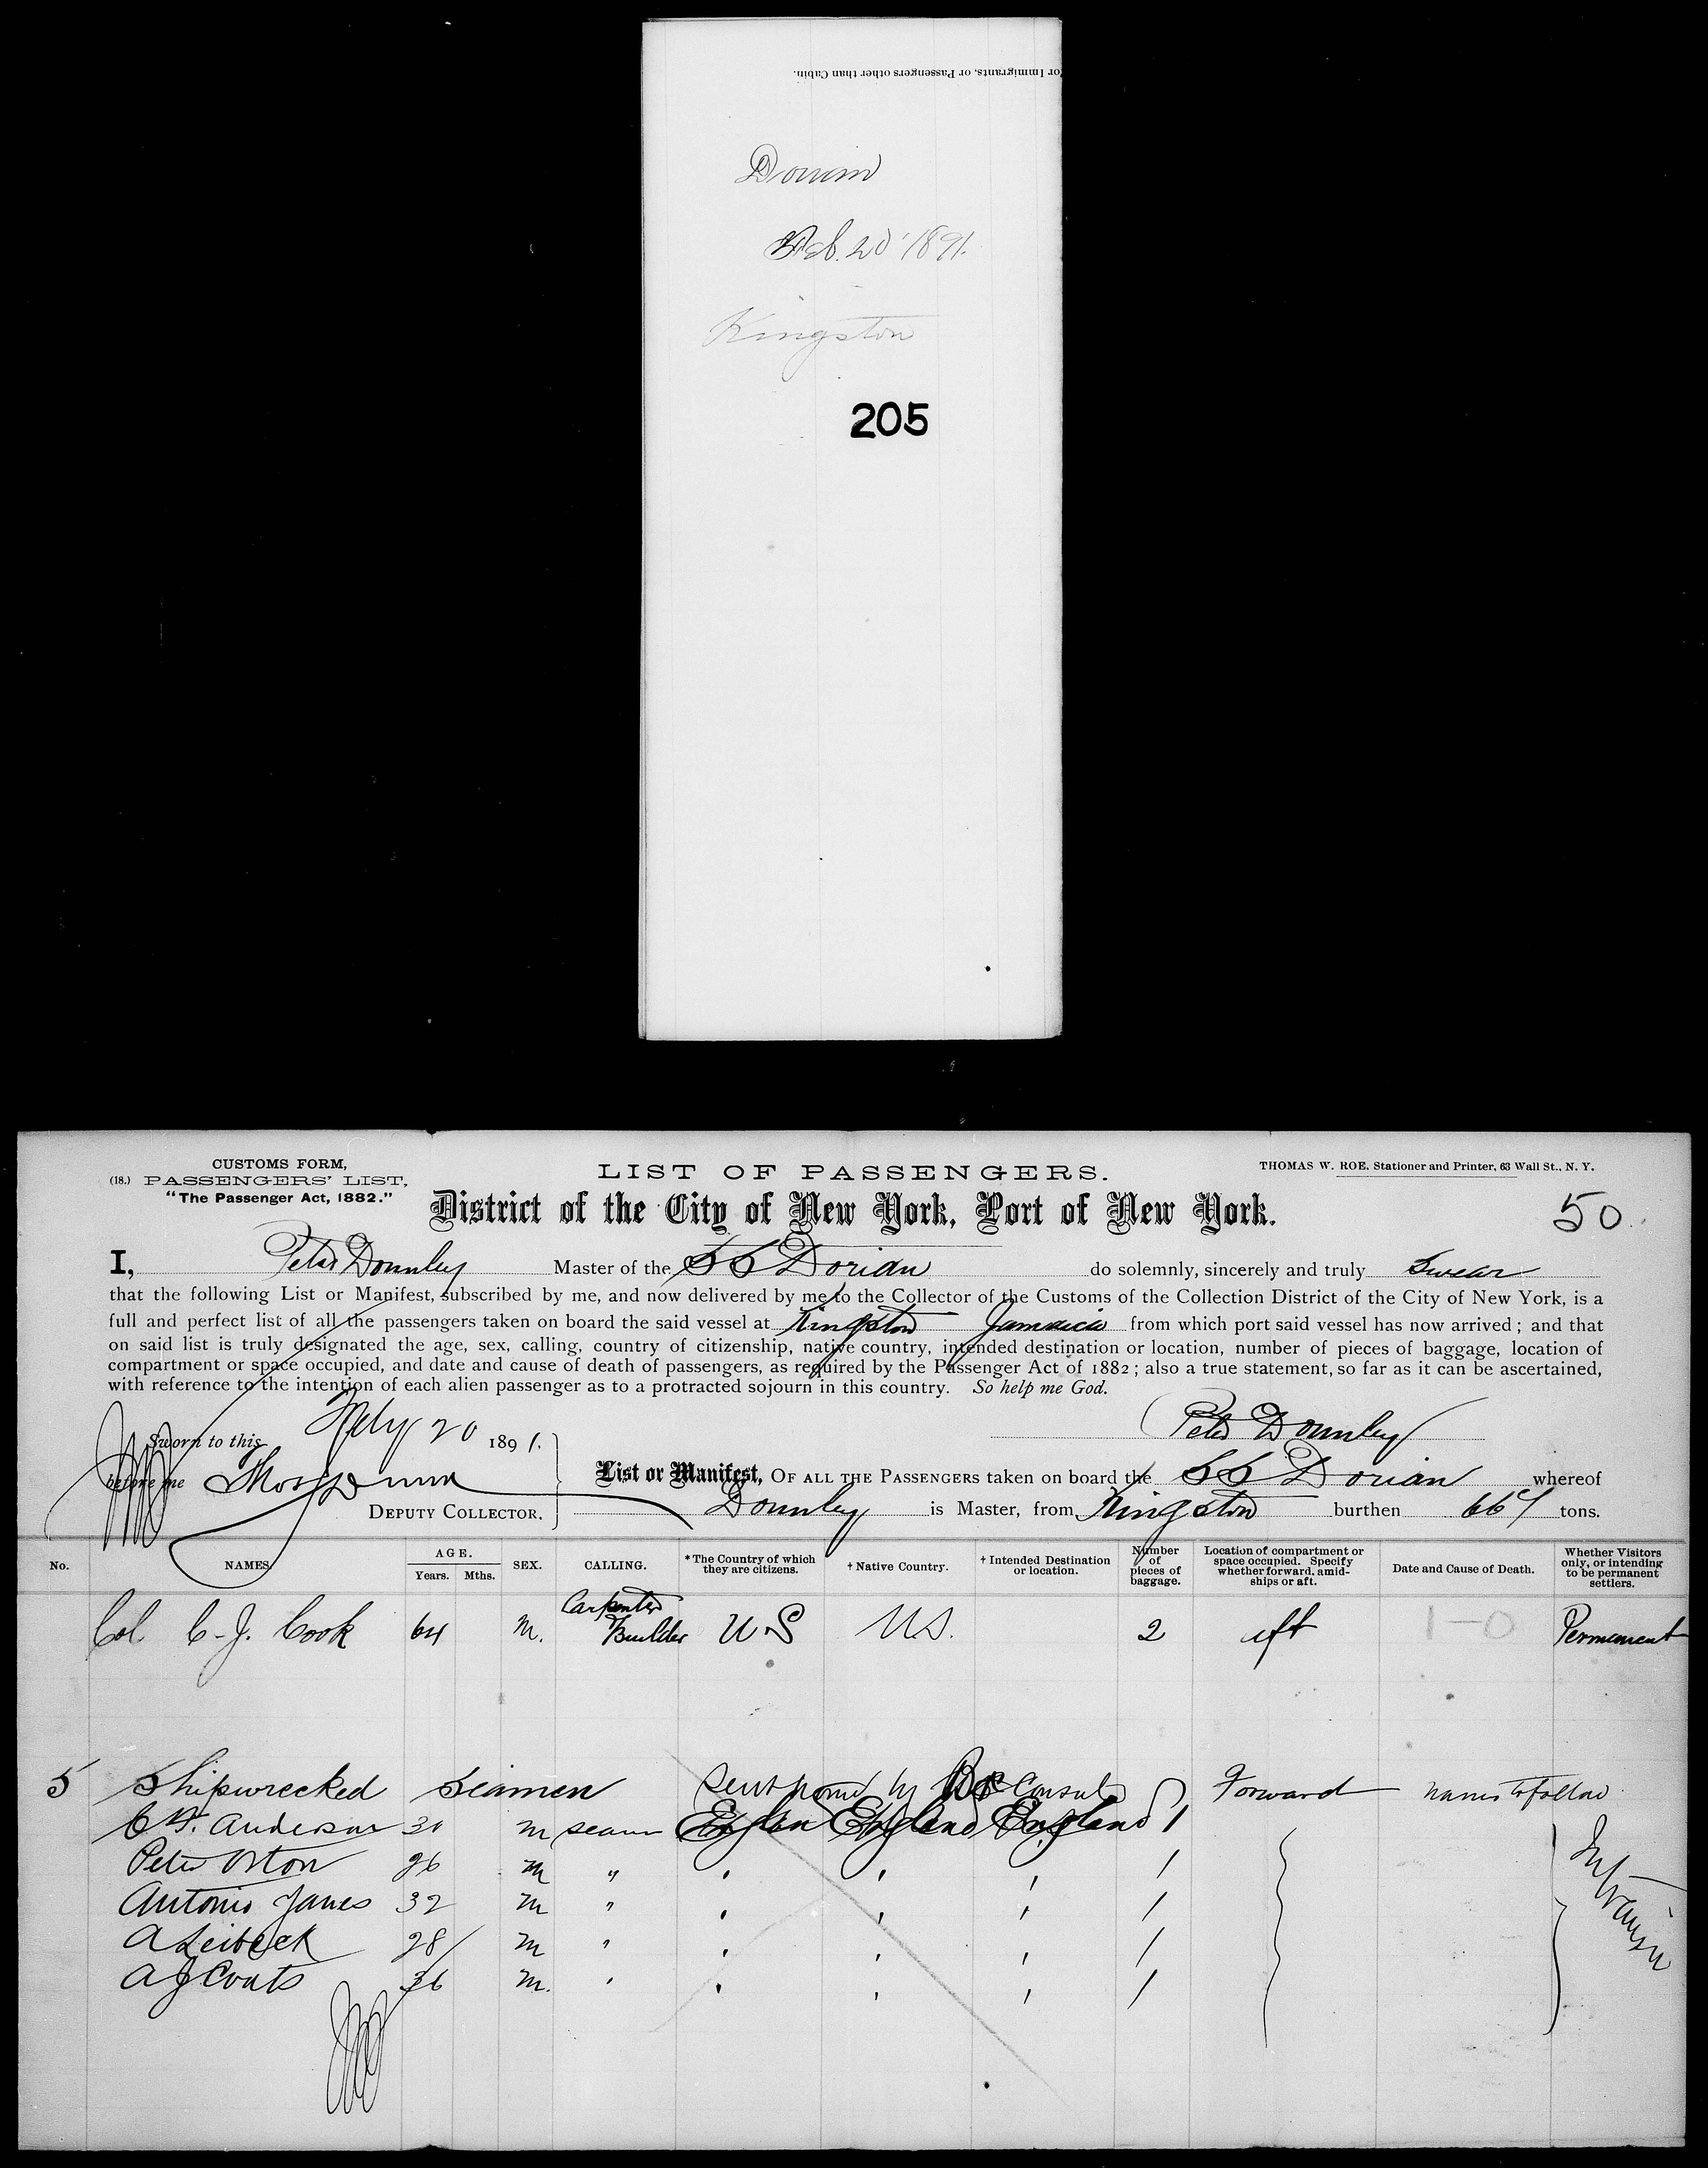 for Immigrants, or Passengers other than Cabin.
Dorian
Feb. 20 1891.
Kingston
205
CUSTOMS FORM,
(18.) PASSENGERS' LIST,
"The Passenger Act, 1882."
LIST OF PASSENGERS.
THOMAS W. ROE, Stationer and Printer, 63 Wall St., N. Y.
District of the City of New York, Port of New York.
50
I, Peter Donnley Master of the SS Dorian do solemnly, sincerely and truly Swear
that the following List or Manifest, subscribed by me, and now delivered by me to the Collector of the Customs of the Collection District of the City of New York, is a
full and perfect list of all the passengers taken on board the said vessel at Kingston Jamaica from which port said vessel has now arrived; and that
on said list is truly designated the age, sex, calling, country of citizenship, native country, intended destination or location, number of pieces of baggage, location of
compartment or space occupied, and date and cause of death of passengers, as required by the Passenger Act of 1882; also a true statement, so far as it can be ascertained,
with reference to the intention of each alien passenger as to a protracted sojourn in this country. So help me God.
Sworn to this Feby 20 1891.
Peter Donnley
before me Thos Dunn
DEPUTY COLLECTOR.
List or Manifest, OF ALL THE PASSENGERS taken on board the SS Dorian whereof
Donnley is Master, from Kingston burthen 667 tons.
No. NAMES AGE. Years. Mths. SEX. CALLING. *The Country of which they are citizens. †Native Country. †Intended Destination or location. Number of pieces of baggage. Location of compartment or space occupied. Specify whether forward, amidships or aft. Date and Cause of Death. Whether Visitors only, or intending to be permanent settlers.
Col. C. J. Cook 64 m. Carpenter Builder U.S U.S. 2 aft 1-0 Permanent
5 Shipwrecked Seamen Sent by Consul Forward names to follow
Anderson 30 m England England England 1
Peter Orton 26 m " " " " 1
Antonio Janes 32 m " " " " 1
A Leibeck 28 m " " " " 1
A J Couts 36 m. " " " " 1
In transit